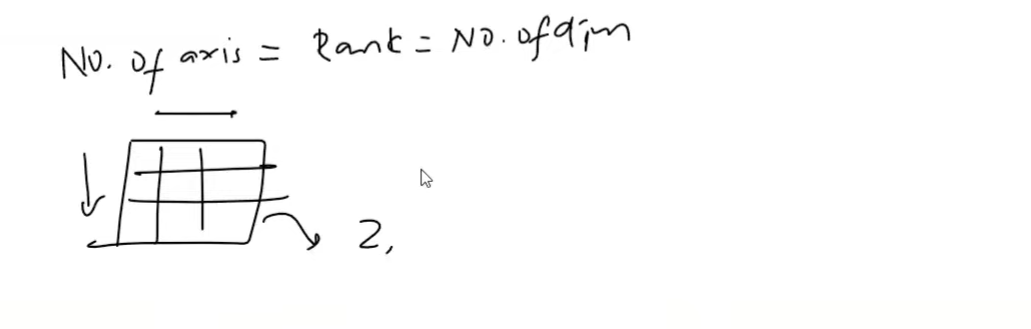 No. of axis = Rank = No. of dim
2,